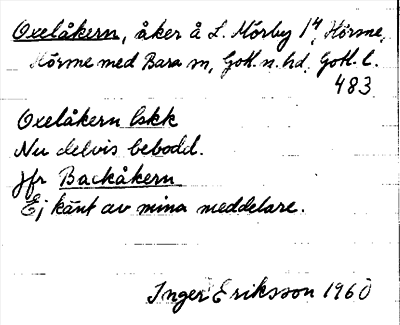 Oxelåkern, åker å L. Mörby 1⁴, Hörsne,
Hörsne med Bara sn, Gotl. n. hd, Gotl. l.
483.
Oxelåkern lskk
Nu delvis bebodd.
Jfr Backåkern
Ej känt av mina meddelare.
Inger Eriksson 1960